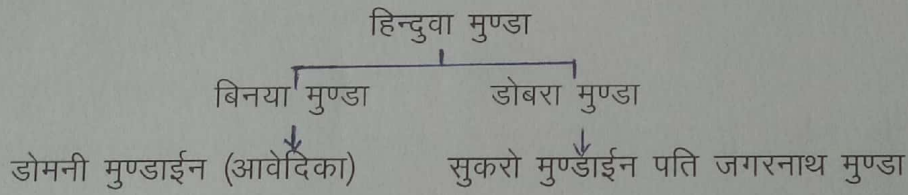 हिन्दुवा मुण्डा
बिनया मुण्डा डोबरा मुण्डा
डोमनी मुण्डाईन (आवेदिका) सुकरो मुण्डाईन पति जगरनाथ मुण्डा